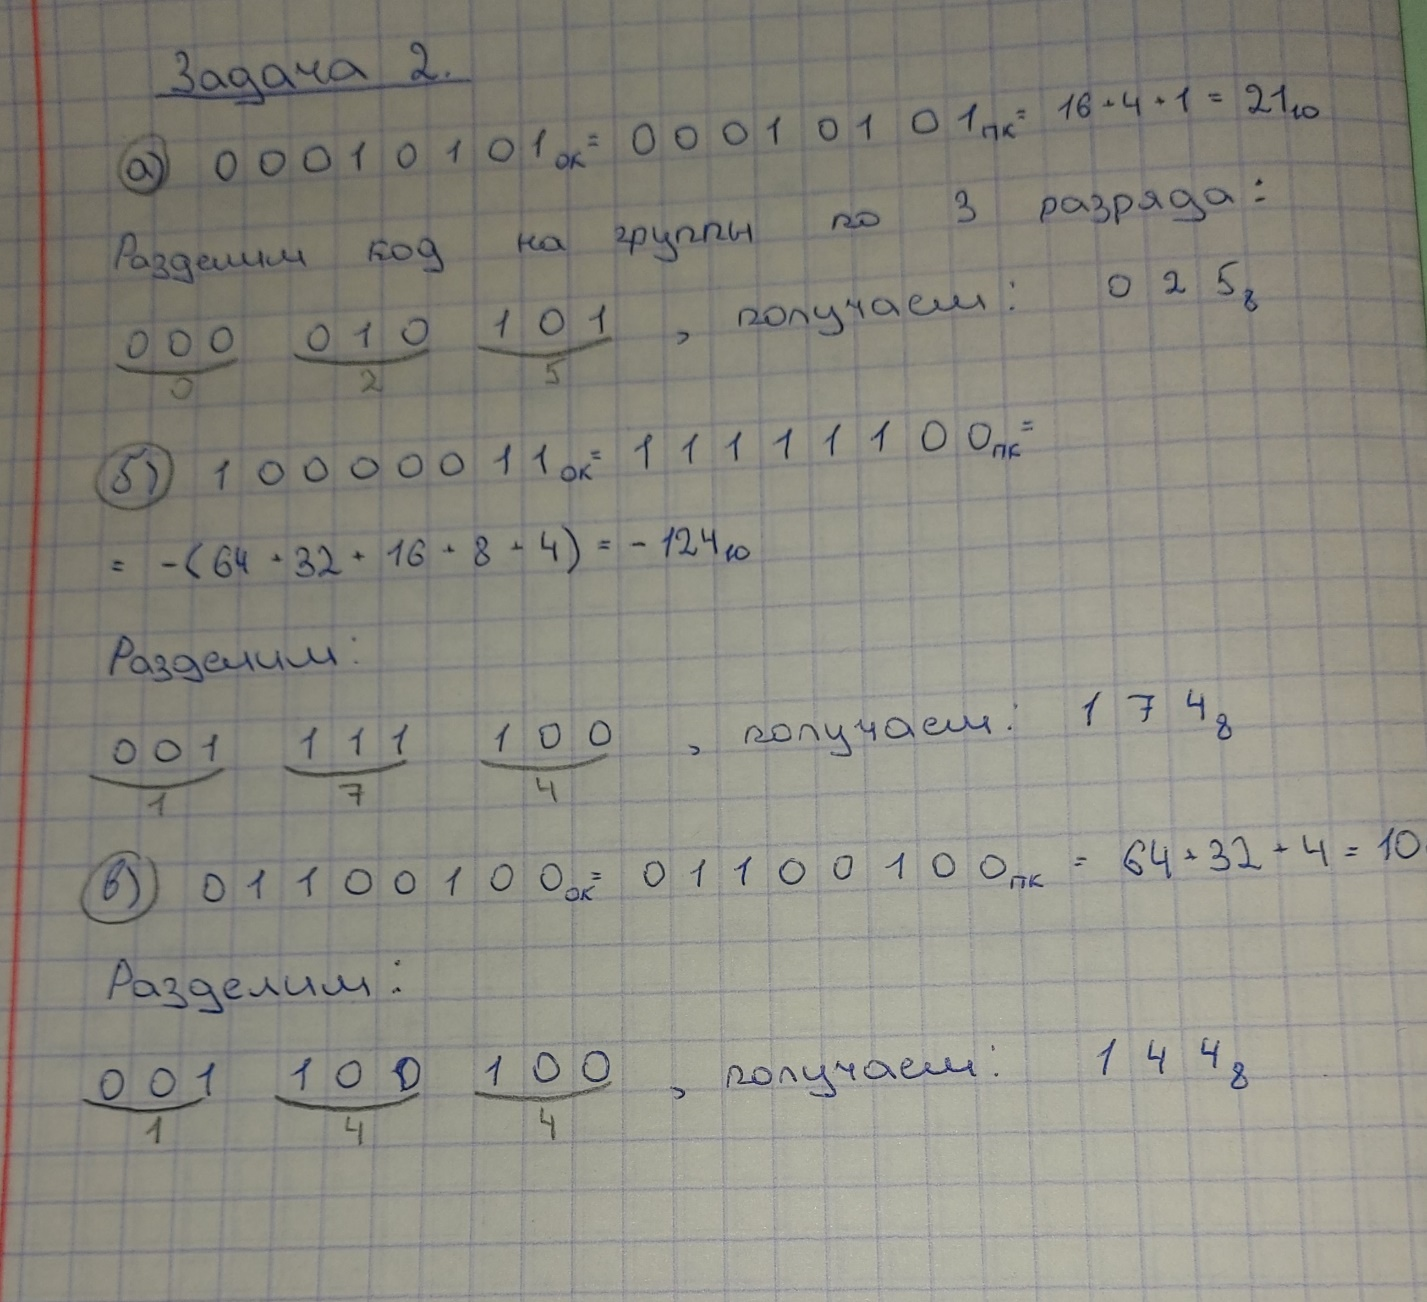 Задача 2.
а) 0 0 0 1 0 1 0 1ОК = 0 0 0 1 0 1 0 1ПК = 16 + 4 + 1 = 21₁₀
Разделим код на группы по 3 разряда:
0 0 0 0 1 0 1 0 1 , получаем: 0 2 5₈
0 2 5
б) 1 0 0 0 0 0 1 1ОК = 1 1 1 1 1 1 0 0ПК =
= -(64 + 32 + 16 + 8 + 4) = - 124₁₀
Разделим:
0 0 1 1 1 1 1 0 0 , получаем: 1 7 4₈
1 7 4
в) 0 1 1 0 0 1 0 0ОК = 0 1 1 0 0 1 0 0ПК = 64 + 32 + 4 = 10
Разделим:
0 0 1 1 0 0 1 0 0 , получаем: 1 4 4₈
1 4 4